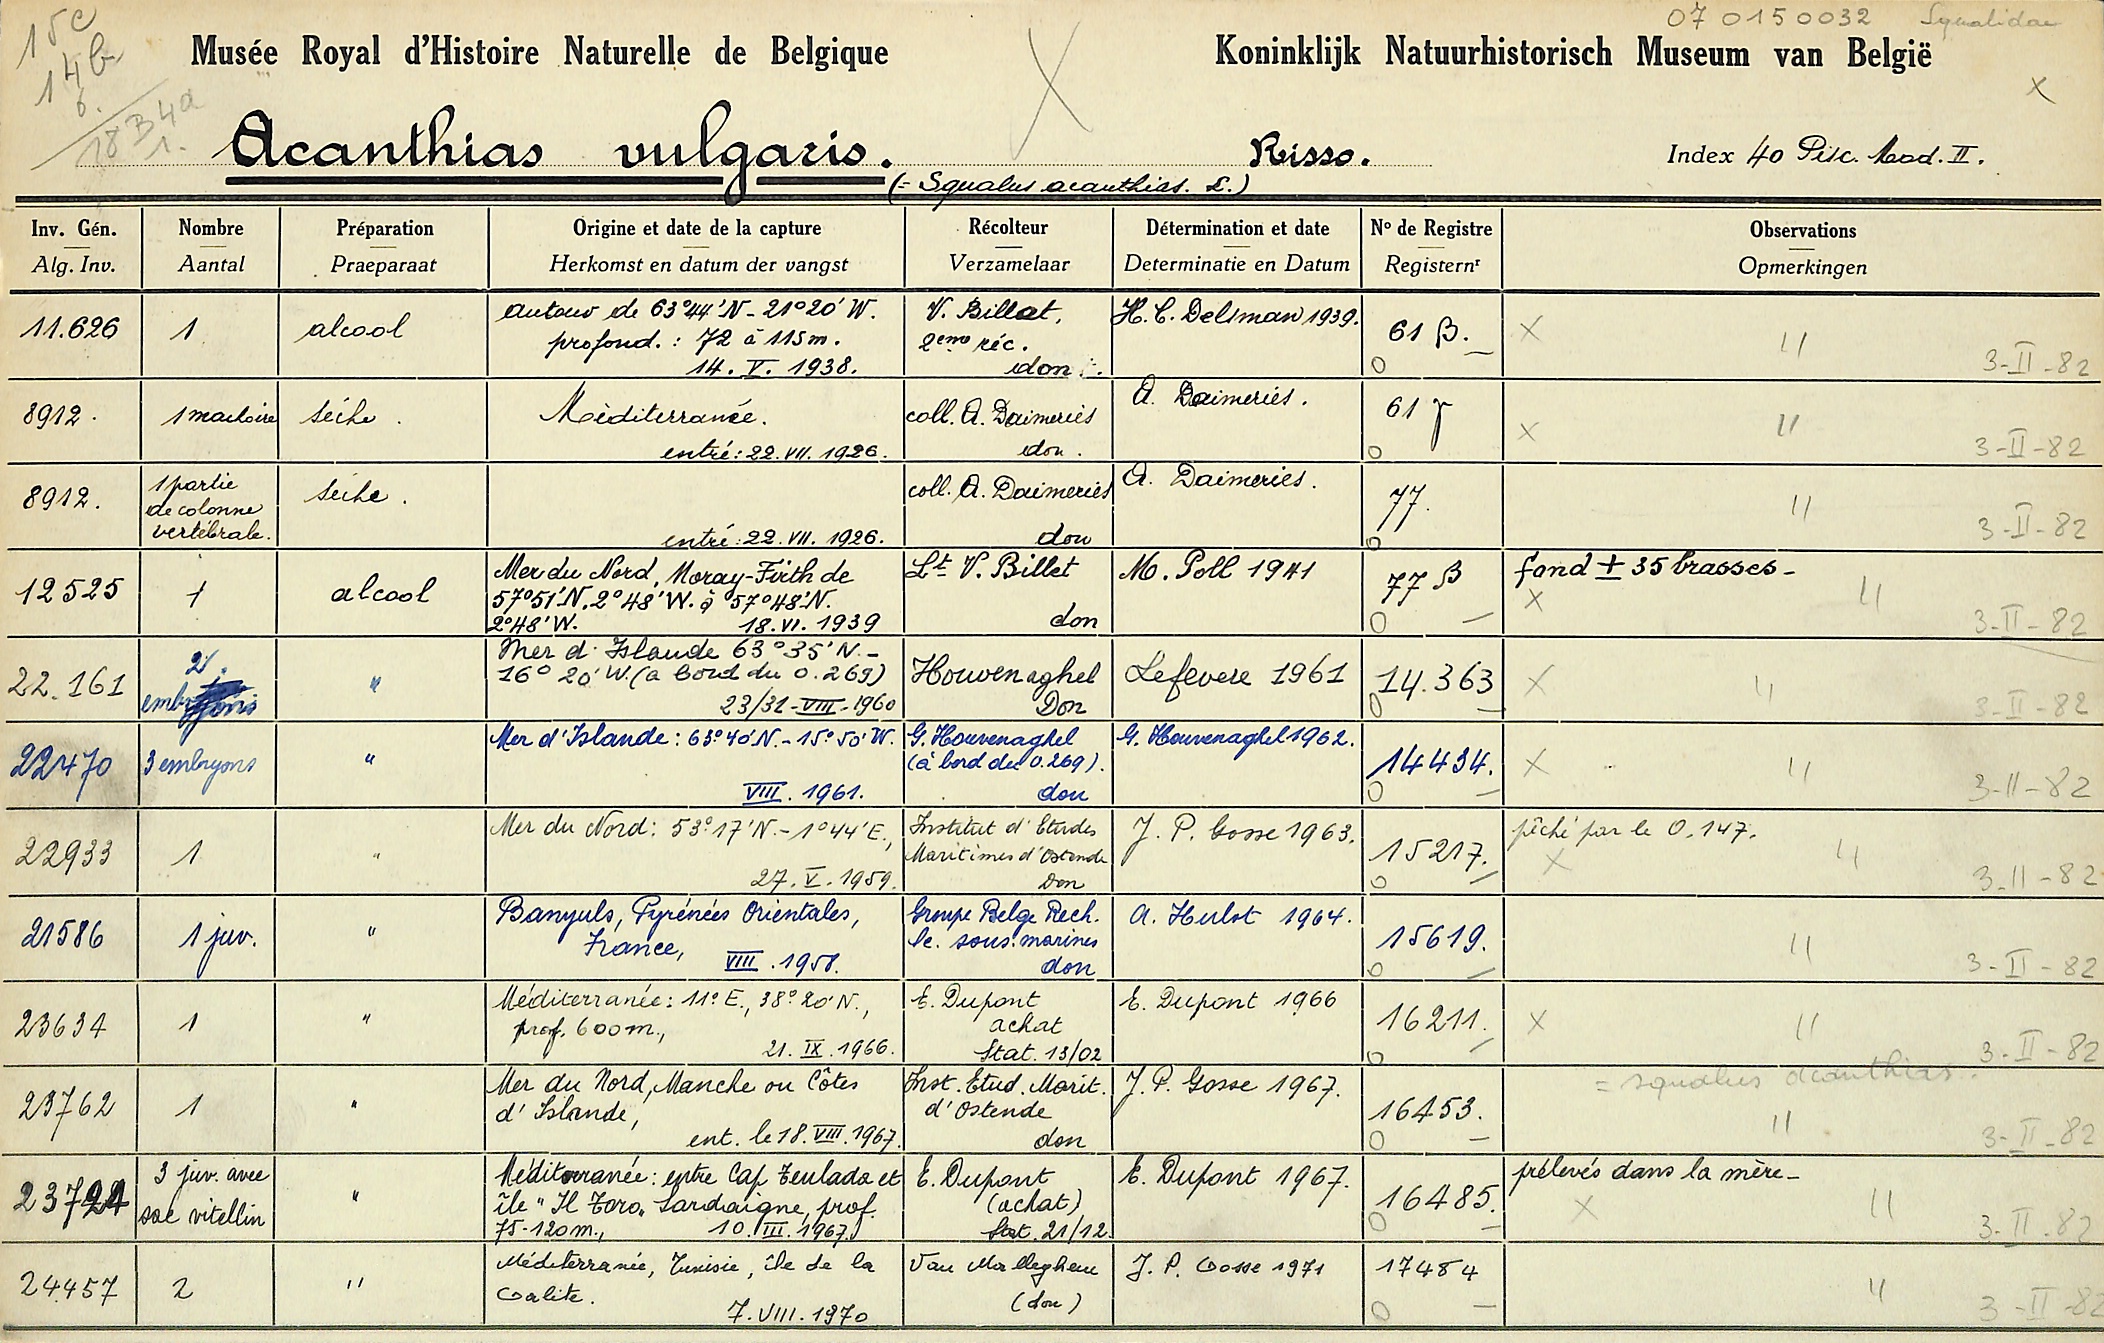 15c
14b
6.
18 B 4a
1.
07 0150032 Squalidae
Musée Royal d'Histoire Naturelle de Belgique
Koninklijk Natuurhistorisch Museum van België
X
x
Acanthias vulgaris. Risso. Index 40 Pisc. Mod. II.
(= Squalus acanthias. L.)
Inv. Gén. Nombre Préparation Origine et date de la capture Récolteur Détermination et date No de Registre Observations
Alg. Inv. Aantal Praeparaat Herkomst en datum der vangst Verzamelaar Determinatie en Datum Registernr Opmerkingen
11.626 1 alcool
autour de 63°44'N - 21°20' W.
profond. : 72 à 115m.
14. V. 1938.
V. Billet,
2ème réc.
don
H. C. Delsman 1939.
61 β.
O
X " 3-II-82
8912. 1 machoire sèche.
Méditerranée.
entré: 22. VII. 1926.
coll. A. Daimeries
don.
A. Daimeries.
61 γ
O
X " 3-II-82
8912.
1 partie
de colonne
vertébrale.
sèche.
entré: 22. VII. 1926.
coll. A. Daimeries
don
A. Daimeries.
77.
O
" 3-II-82
12525 1 alcool
Mer du Nord, Moray-Firth de
57°51'N. 2°48'W. à 57°48'N.
2°48'W. 18. VI. 1939
Lt V. Billet
don
M. Poll 1941
77 β
O
fond ± 35 brasses -
X " 3-II-82
22.161
2
"
Mer d'Islande 63°35'N. -
16° 20' W. (à bord du O.269)
23/31-VIII-1960
Houvenaghel
Don
Lefevere 1961
14.363
O
X " 3-II-82
22470 3 embryons "
Mer d'Islande: 63°40'N. - 15°50'W.
VIII. 1961.
G. Houvenaghel
(à bord du O.269).
don
G. Houvenaghel 1962.
14434.
O
X " 3-II-82
22933 1 "
Mer du Nord: 53°17'N. - 1°44'E.,
27. V. 1959.
Institut d'Etudes
Maritimes d'Ostende
Don
J. P. Gosse 1963.
15217.
O
pêché par le O.147.
X " 3-II-82
21586 1 juv. "
Banyuls, Pyrénées Orientales,
France,
VIII. 1958.
Groupe Belge Rech.
Sc. sous-marines
don
A. Hulot 1964.
15619.
O
" 3-II-82
23634 1 "
Méditerranée: 11° E., 38°20'N.,
prof. 600m.,
21. IX. 1966.
E. Dupont
achat
Stat. 13/02
E. Dupont 1966
16211.
O
X " 3-II-82
= squalus acanthias.
23762 1 "
Mer du Nord, Manche ou Côtes
d'Islande,
ent. le 18. VIII. 1967.
Inst. Etud. Marit.
d'Ostende
don
J. P. Gosse 1967.
16453.
O
" 3-II-82
3 juv. avec
sac vitellin
"
Méditerranée: entre Cap Teulada et
île "Il Toro" Sardaigne, prof.
75-120m., 10. III. 1967.
E. Dupont
(achat)
Stat. 21/12.
E. Dupont 1967.
16485.
O
prélevés dans la mère -
X " 3-II-82
24457 2 "
Méditerranée, Tunisie, île de la
Galite.
7. VIII. 1970
Van Malleghem
(don)
J. P. Gosse 1971
17484
O
" 3-II-82